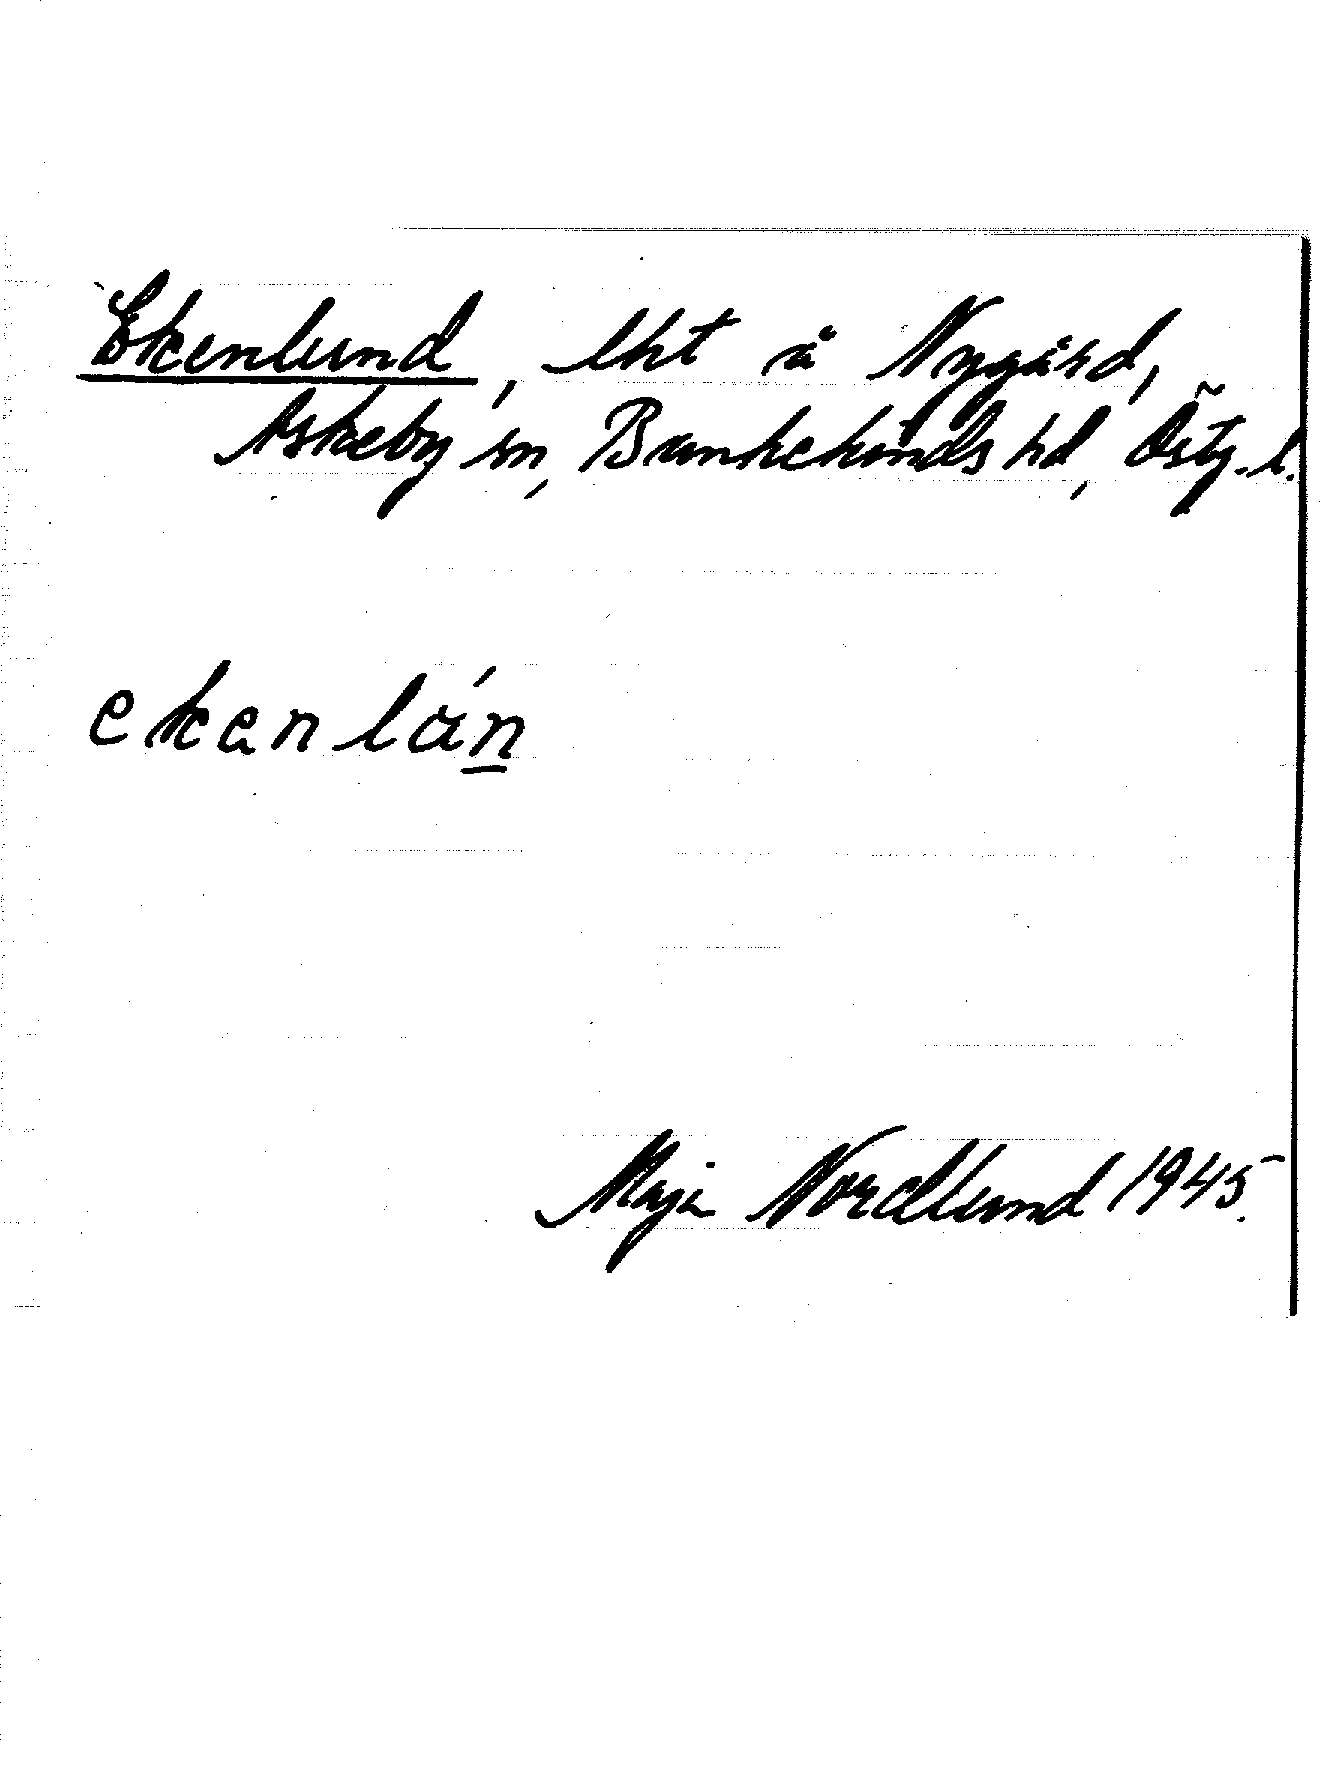 Ekenlund, lht å Nygård,
Askeby sn, Bankekinds hd, Östg. l.
ekenlán
Maja Nordlund 1945.